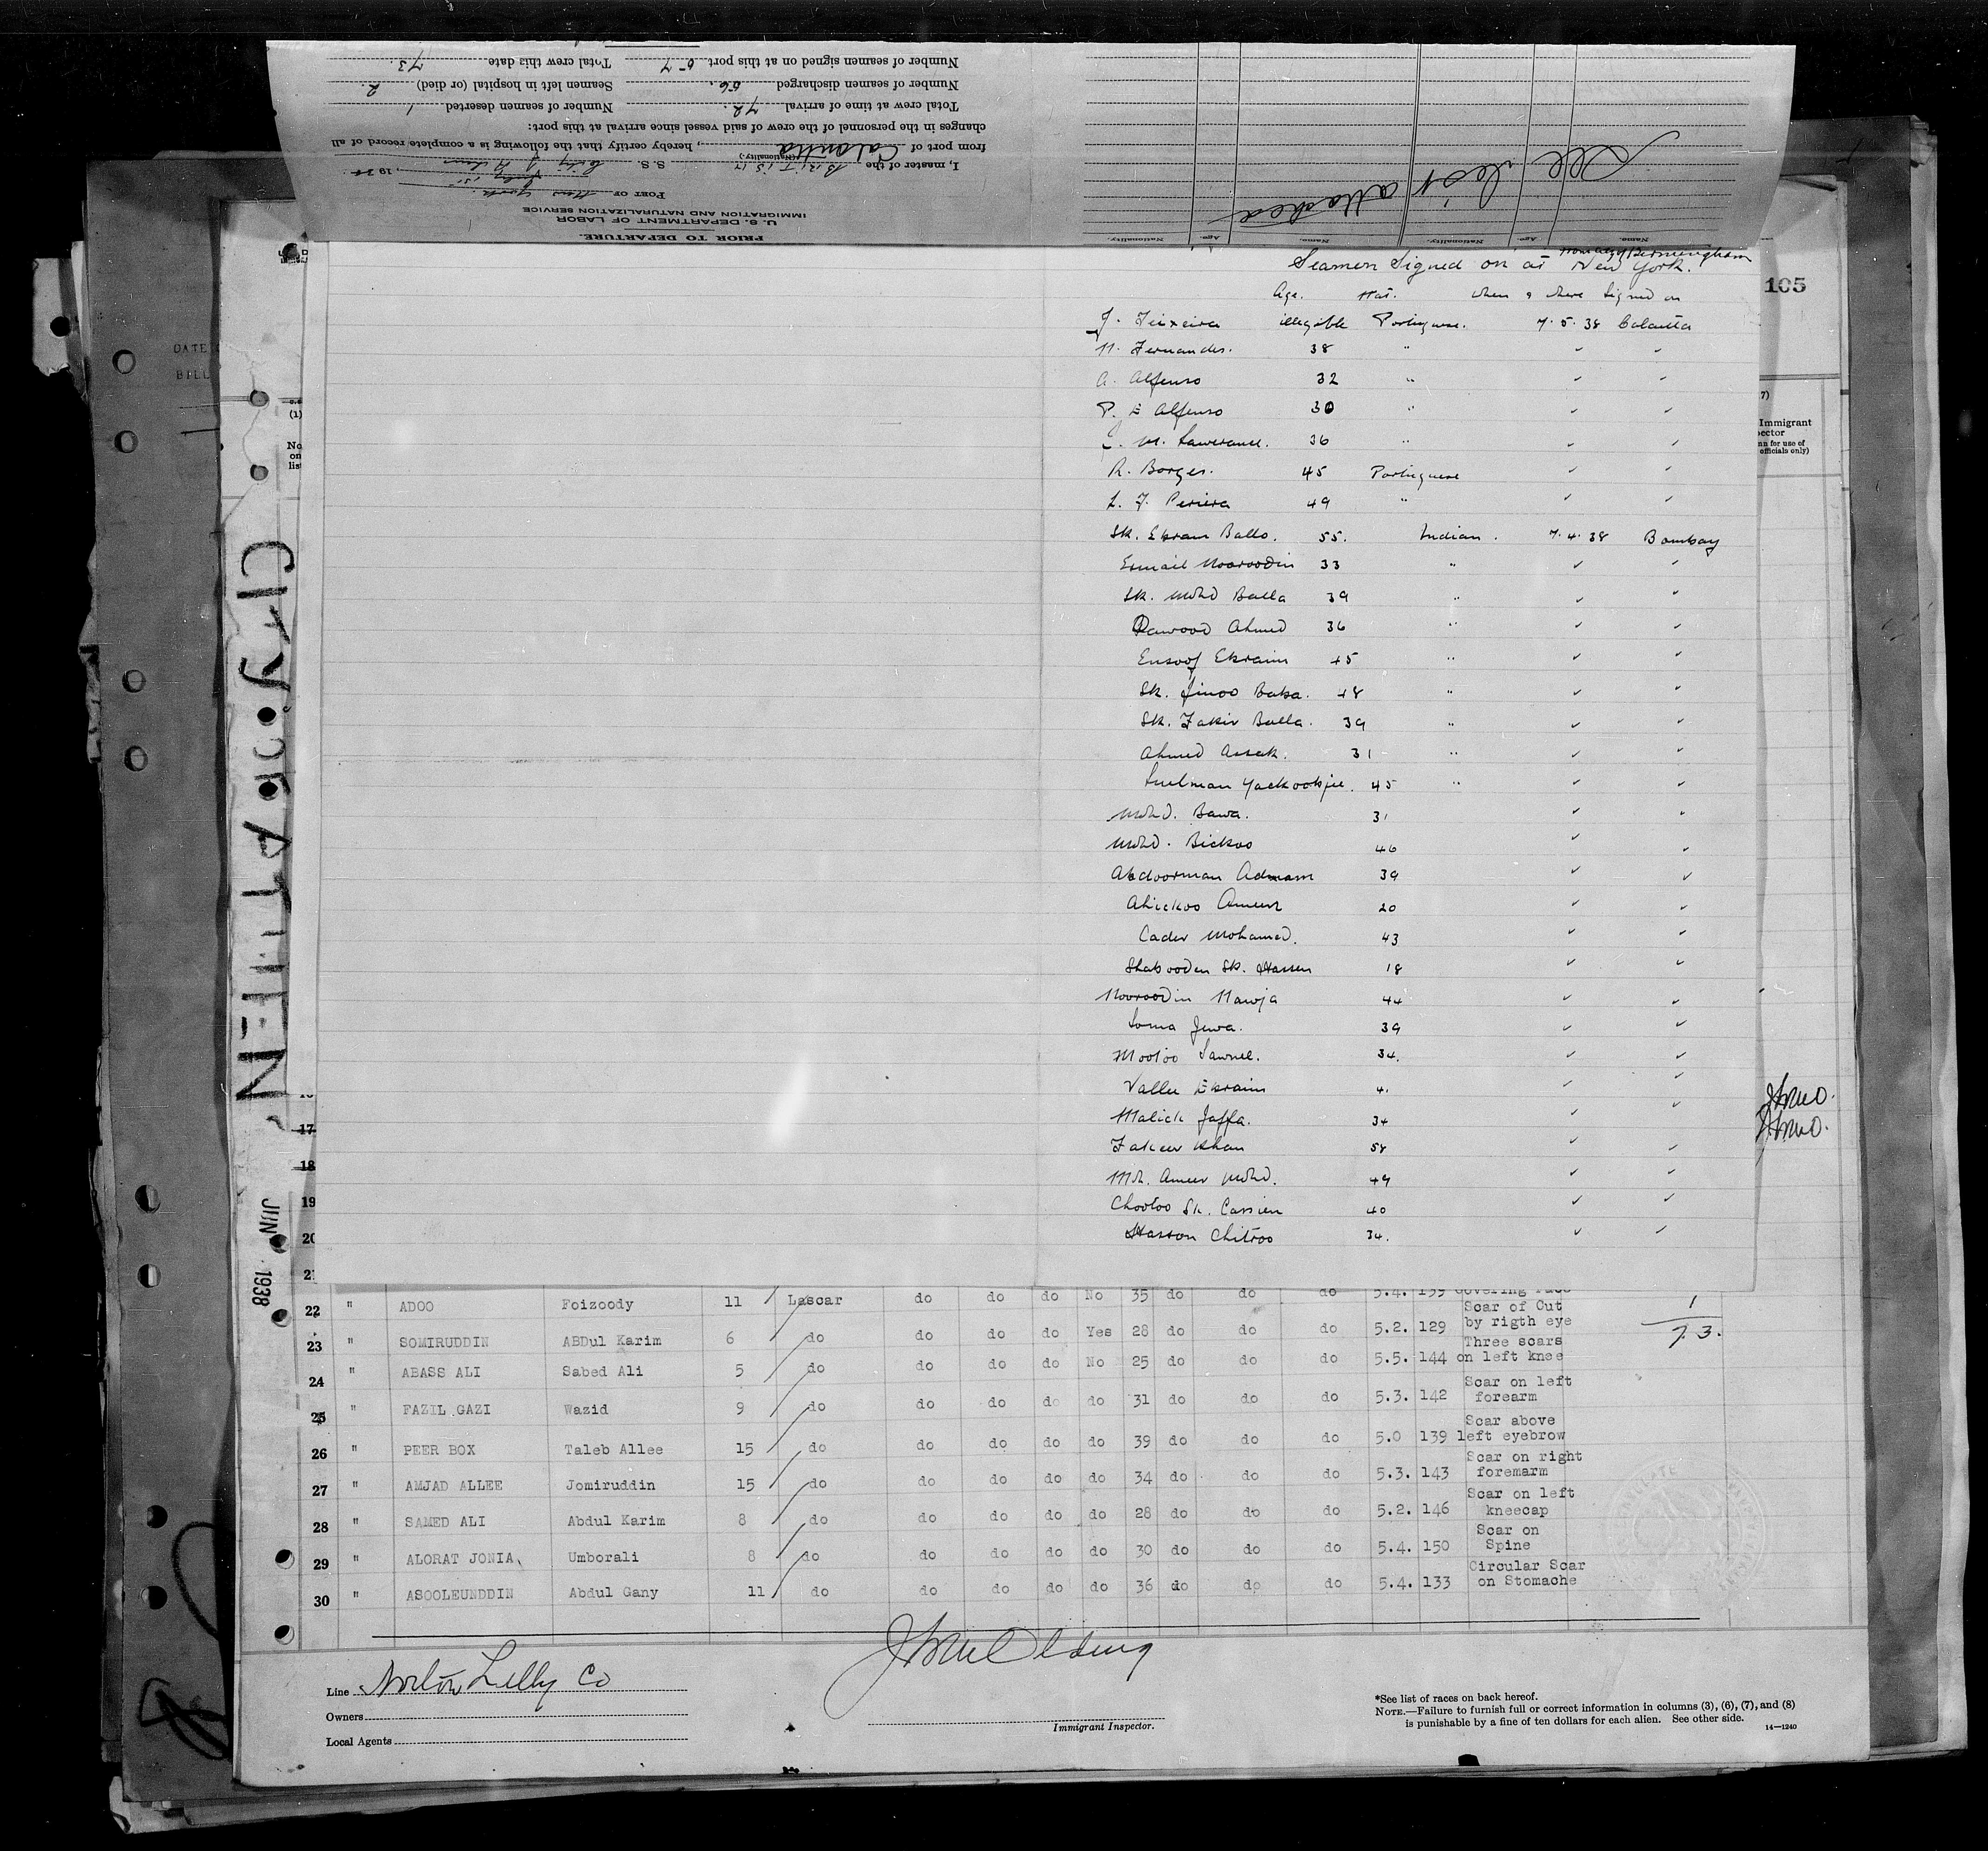 PRIOR TO DEPARTURE.
U. S. DEPARTMENT OF LABOR
IMMIGRATION AND NATURALIZATION SERVICE
PORT OF New York
I, master of the British S. S. City of
(Nationality)
from port of Calcutta, hereby certify that the following is a complete record of all
changes in the personnel of the crew of said vessel since arrival at this port:
Total crew at time of arrival 72. Number of seamen deserted 1
Number of seamen discharged 56. Seamen left in hospital (or died) 2
Number of seamen signed on at this port 57 Total crew this date 73.
Name. Age. Nationality. Name. Age. Nationality.
list attached
from City of Birmingham
Seamen Signed on at New York.
Age. Nat. When & where Signed on
J. Teixeira illegible Portuguese. 7.5.38 Calcutta
N. Fernandes. 38 " ✓ ✓
A. Alfenso 32 " ✓ ✓
P. E Alfenso 30 " ✓ ✓
M. Lawerance. 36 " ✓ ✓
R. Borges. 45 Portuguese ✓ ✓
L. J. Periera 49 " ✓ ✓
Sk. Ebram Ballo. 55. Indian. 7.4.38 Bombay
Esmail Nooroodin 33 " ✓ ✓
Sk. Mohd Balla 39 " ✓ ✓
Dawood Ahmed 36 " ✓ ✓
Ensoof Ebraim 45 " ✓ ✓
Sk. Jinoo Baba. 48 " ✓ ✓
Sk. Fakir Balla. 39 " ✓ ✓
Ahmed Assak. 31 " ✓ ✓
Sulman Yackoobjee. 45 " ✓ ✓
Mohd. Bawa. 31 ✓ ✓
Mohd. Bickoo 46 ✓ ✓
Abdoorman Admam 39 ✓ ✓
Abickoo Ameer 20 ✓ ✓
Cader Mohamed. 43 ✓ ✓
Shabooden Sk. Hassen 18 ✓ ✓
Nooroodin Nawja 44 ✓ ✓
Soma Jewa. 39 ✓ ✓
Mootoo Sawnee. 34. ✓ ✓
Vallee Ebraim 41 ✓ ✓
Malick Jaffa. 34 ✓ ✓
Fakeer Khan 58 ✓ ✓
Md. Ameer Mohd. 49 ✓ ✓
Chootoo Sk. Cassien 40 ✓ ✓
Hasson Chitroo 34. ✓ ✓
105
DATE
BILL
(1)
No
on
list
7)
Immigrant
ector
nn for use of
officials only)
CITY OF ATHENS
JUN 1938
17
18
19
20
21
22 " ADOO Foizoody 11 Lascar do do do No 35 do do do 5.4. 139 covering face
1
23 " SOMIRUDDIN ABDul Karim 6 do do do do Yes 28 do do do 5.2. 129 Scar of Cut by rigth eye
73.
24 " ABASS ALI Sabed Ali 5 do do do do No 25 do do do 5.5. 144 Three scars on left knee
25 " FAZIL GAZI Wazid 9 do do do do do 31 do do do 5.3. 142 Scar on left forearm
26 " PEER BOX Taleb Allee 15 do do do do do 39 do do do 5.0 139 Scar above left eyebrow
27 " AMJAD ALLEE Jomiruddin 15 do do do do do 34 do do do 5.3. 143 Scar on right foremarm
28 " SAMED ALI Abdul Karim 8 do do do do do 28 do do do 5.2. 146 Scar on left kneecap
29 " ALORAT JONIA Umborali 8 do do do do do 30 do do do 5.4. 150 Scar on Spine
30 " ASOOLEUNDDIN Abdul Gany 11 do do do do do 36 do do do 5.4. 133 Circular Scar on Stomache
Line Norton Lilly Co
Owners
Local Agents
Immigrant Inspector.
*See list of races on back hereof.
NOTE.—Failure to furnish full or correct information in columns (3), (6), (7), and (8)
is punishable by a fine of ten dollars for each alien. See other side. 14—1240